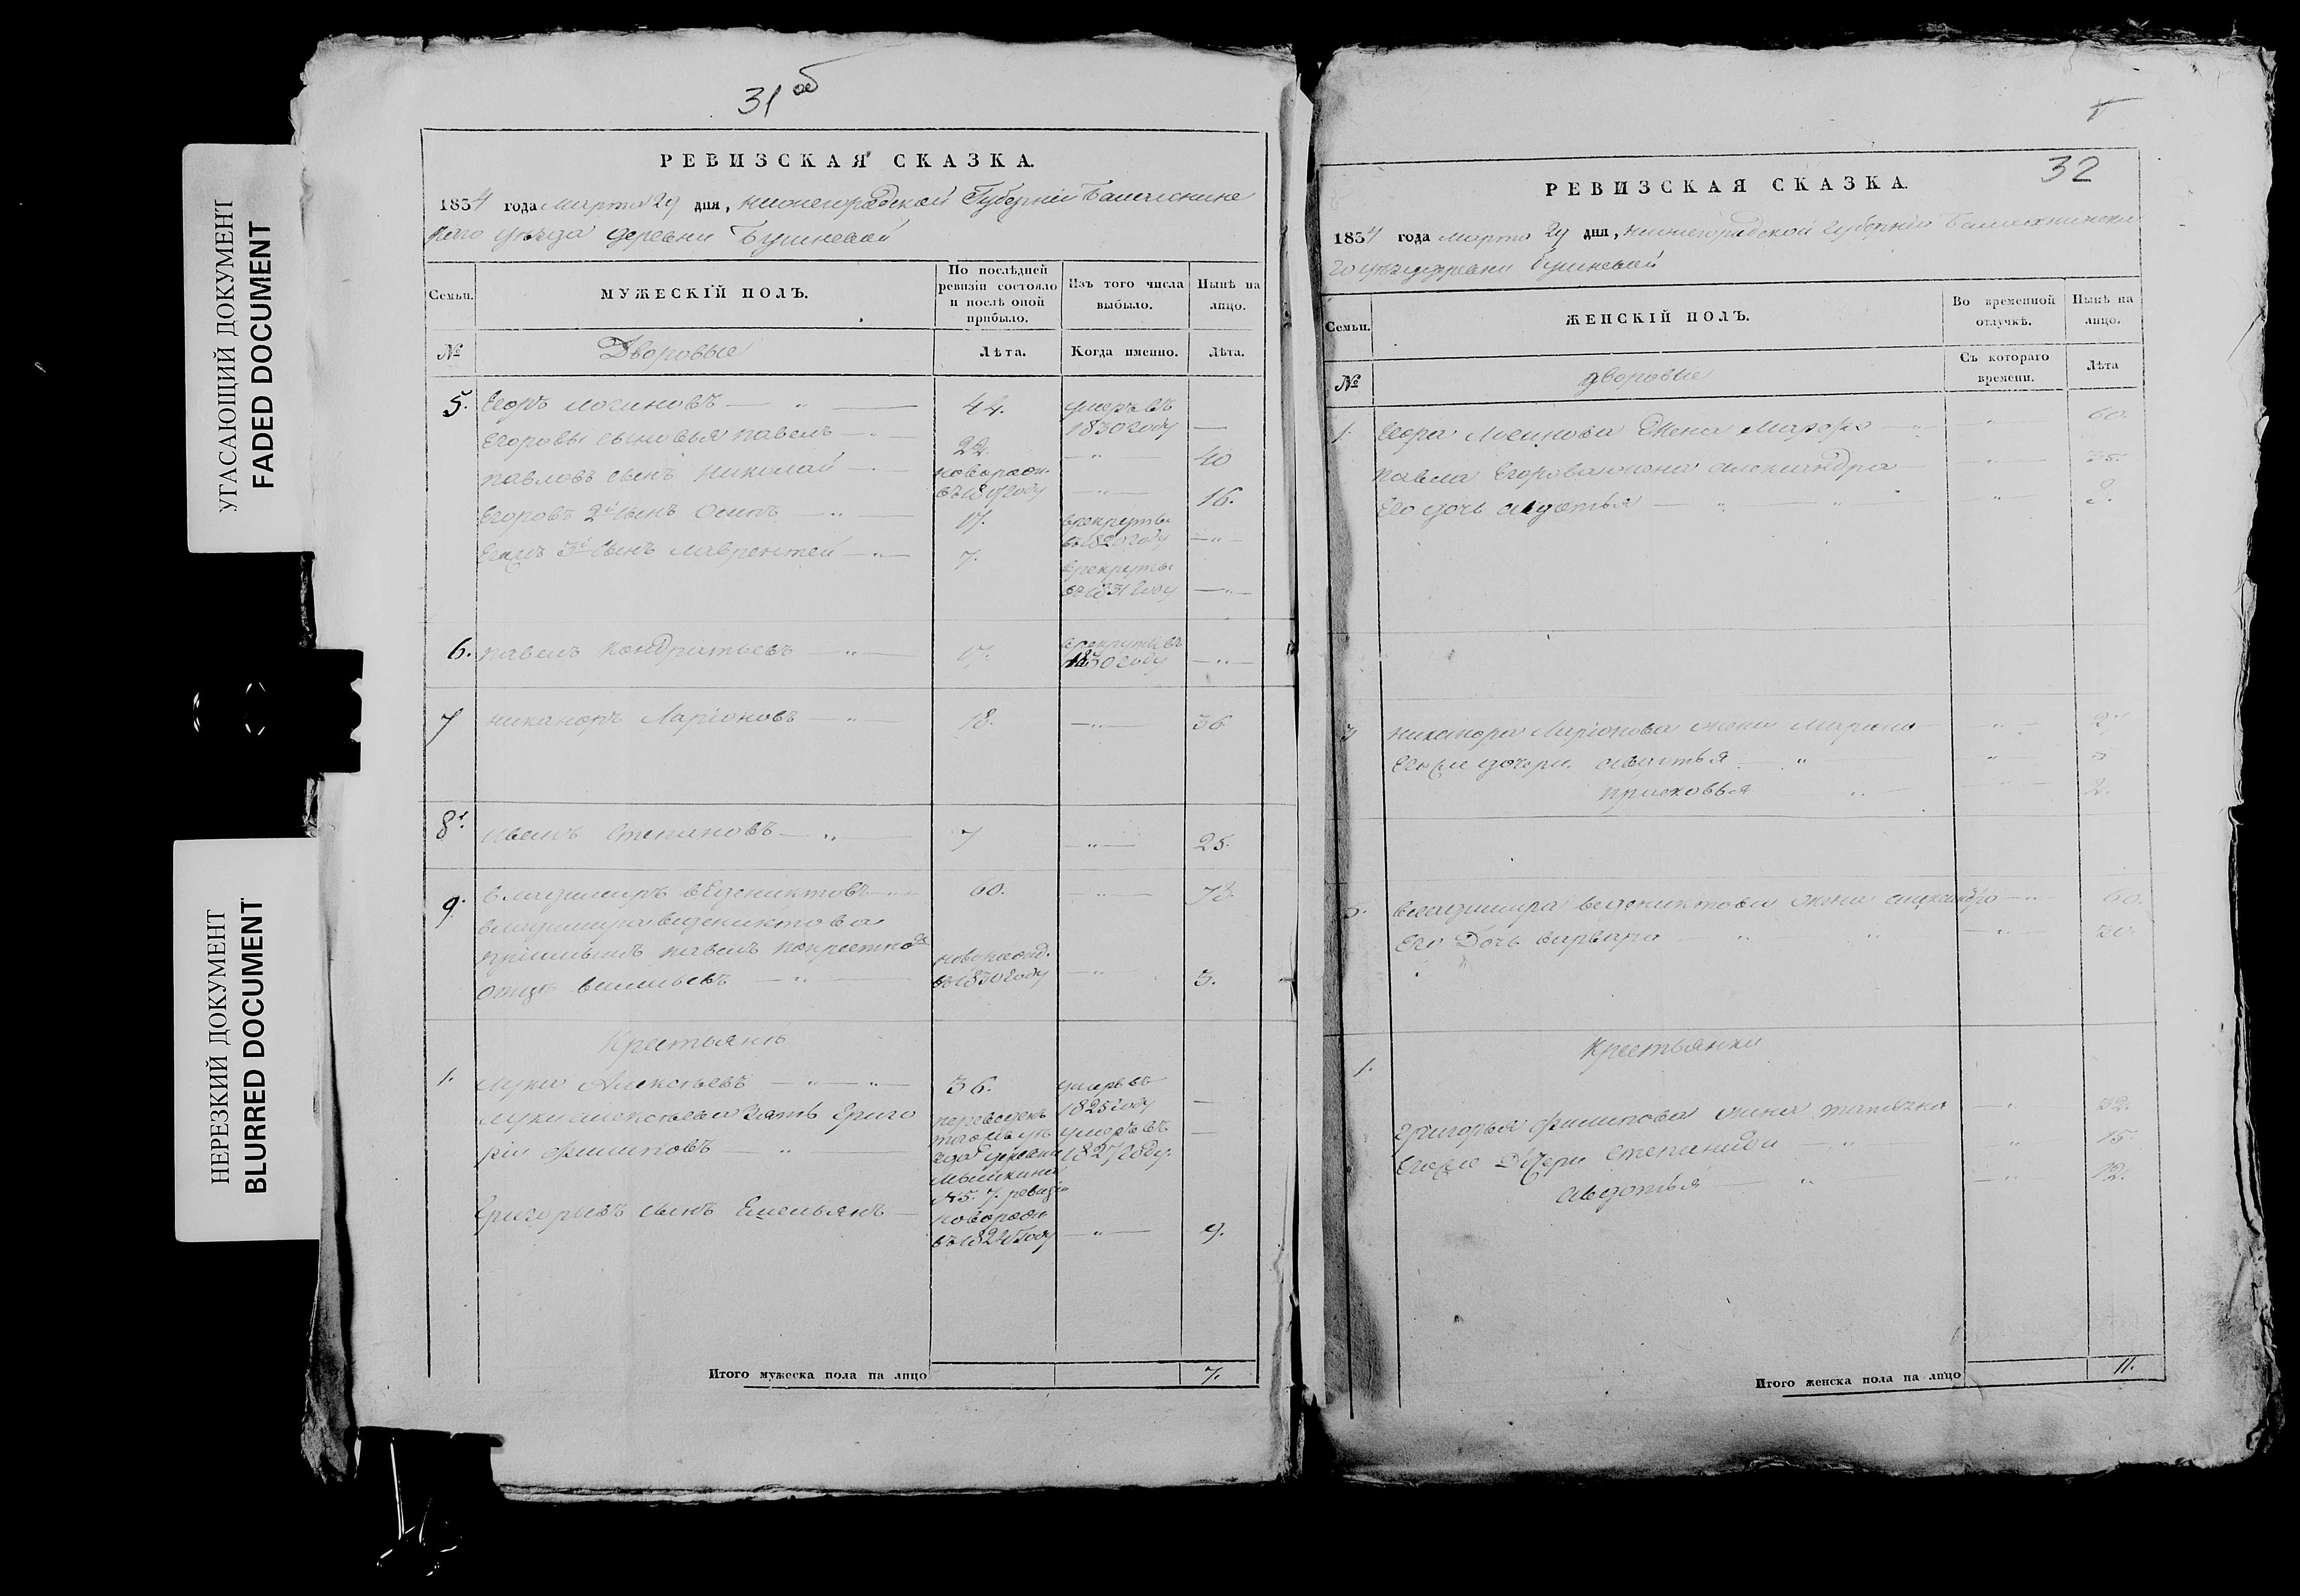 УГАСАЮЩИЙ ДОКУМЕНТ
FADED DOCUMENT
НЕРЕЗКИЙ ДОКУМЕНТ
BLURRED DOCUMENT
31 об
РЕВИЗСКАЯ СКАЗКА.
1834 года Марта 29 дня, Нижегородской Губерніи Балахнинс
каго уѣзда деревни
Семьи.
МУЖЕСКІЙ ПОЛЪ.
По послѣдней ревизіи состояло и послѣ оной прибыло.
Изъ того числа выбыло.
Нынѣ на лицо.
№
Дворовые
Лѣта.
Когда именно.
Лѣта.
5. Егоръ Логиновъ 44. умеръ въ 1830 году
Егоровы сыновья Павелъ 22. 40
Павловъ сынъ Николай новорожд. 16.
Егоровъ 2й сынъ Осипъ 17. в рекруты въ 1820 году
3й сынъ Лаврентей 7. в рекруты въ 1831 году
6. Павелъ Кондратьевъ 17. в рекруты въ 1830 году
7 Никаноръ Ларіоновъ 18. 36
8. Иванъ Степановъ 7 25.
9. Владимиръ Веденихтовъ 60.
Владимира Веденихтова
Павелъ по крестно
отцѣ Васильевъ новорожд. въ 1830 году 3.
Крестьяне
1. Лука Алексѣевъ 36. умеръ въ 1825 году
Луки Алексѣева зять Григо
рій Филиповъ переведенъ того ж уѣ зда деревни
№ 5. 7. ревизіи умеръ въ 1827 году.
Григорьевъ сынъ Емельянъ новорожд. 9.
Итого мужеска пола на лицо 7.
32
РЕВИЗСКАЯ СКАЗКА.
1834 года Марта 29 дня, Нижегородской Губерніи Балахнинска
го уѣзда деревни
Семьи.
ЖЕНСКІЙ ПОЛЪ.
Во временной отлучкѣ.
Нынѣ на лицо.
№
Дворовые
Съ котораго времени.
Лѣта
Егора Логинова жена Марфа 60.
Павла Егорова жена Александра 35.
Его дочь Авдотья
Никанора Ларіонова жена Марина
Его же дочери
Прасковья 2.
Владимира Веденихтова жена Александра 60.
Его Дочь Варвара 30.
Крестьянки
1.
Григорья Филипова жена Татьяна 32.
Его же Дочери Степанида 15.
Авдотья 12.
Итого женска пола на лицо 11.